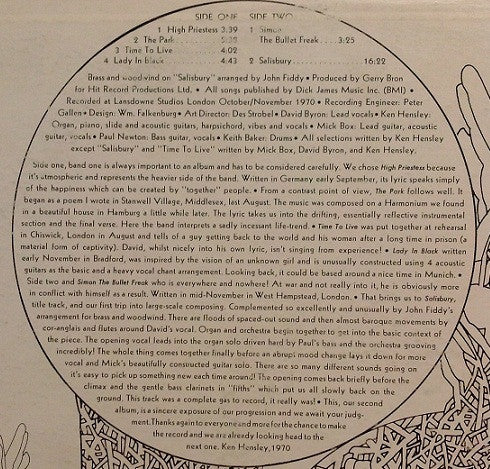 SIDE ONE SIDE TWO
1 High Priestess 3:39 1 Simon
2 The Park 5:38 The Bullet Freak . . . 3:25
3 Time To Live 4:02
4 Lady In Black 4:43 2 Salisbury 16:22
Brass and woodwind on "Salisbury" arranged by John Fiddy • Produced by Gerry Bron
for Hit Record Productions Ltd. • All songs published by Dick James Music Inc. (BMI) •
Recorded at Lansdowne Studios London October/November 1970 • Recording Engineer: Peter
Gallen • Design: Wm. Falkenburg • Art Director: Des Strobel • David Byron: Lead vocals • Ken Hensley:
Organ, piano, slide and acoustic guitars, harpsichord, vibes and vocals • Mick Box: Lead guitar, acoustic
guitar, vocals • Paul Newton: Bass guitar, vocals • Keith Baker: Drums • All selections written by Ken Hensley
except "Salisbury" and "Time To Live" written by Mick Box, David Byron, and Ken Hensley.
Side one, band one is always important to an album and has to be considered carefully. We chose High Priestess because
it's atmospheric and represents the heavier side of the band. Written in Germany early September, its lyric speaks simply
of the happiness which can be created by "together" people. • From a contrast point of view, The Park follows well. It
began as a poem I wrote in Stanwell Village, Middlesex, last August. The music was composed on a Harmonium we found
in a beautiful house in Hamburg a little while later. The lyric takes us into the drifting, essentially reflective instrumental
section and the final verse. Here the band interprets a sadly incessant life-trend. • Time To Live was put together at rehearsal
in Chiswick, London in August and tells of a guy getting back to the world and his woman after a long time in prison (a
material form of captivity). David, whilst nicely into his own lyric, isn't singing from experience! • Lady In Black written
early November in Bradford, was inspired by the vision of an unknown girl and is unusually constructed using 4 acoustic
guitars as the basic and a heavy vocal chant arrangement. Looking back, it could be based around a nice time in Munich. •
Side two and Simon The Bullet Freak who is everywhere and nowhere! At war and not really into it, he is obviously more
in conflict with himself as a result. Written in mid-November in West Hampstead, London. • That brings us to Salisbury,
title track, and our first trip into large-scale composing. Complemented so excellently and unusually by John Fiddy's
arrangement for brass and woodwind. There are floods of spaced-out sound and then almost baroque movements by
cor-anglais and flutes around David's vocal. Organ and orchestra begin together to get into the basic context of
the piece. The opening vocal leads into the organ solo driven hard by Paul's bass and the orchestra grooving
incredibly! The whole thing comes together finally before an abrupt mood change lays it down for more
vocal and Mick's beautifully constructed guitar solo. There are so many different sounds going on
it's easy to pick up something new each time around! The opening comes back briefly before the
climax and the gentle bass clarinets in "fifths" which put us all slowly back on the
ground. This track was a complete gas to record, it really was! • This, our second
album, is a sincere exposure of our progression and we await your judg-
ment. Thanks again to everyone and more for the chance to make
the record and we are already looking head to the
next one. Ken Hensley, 1970